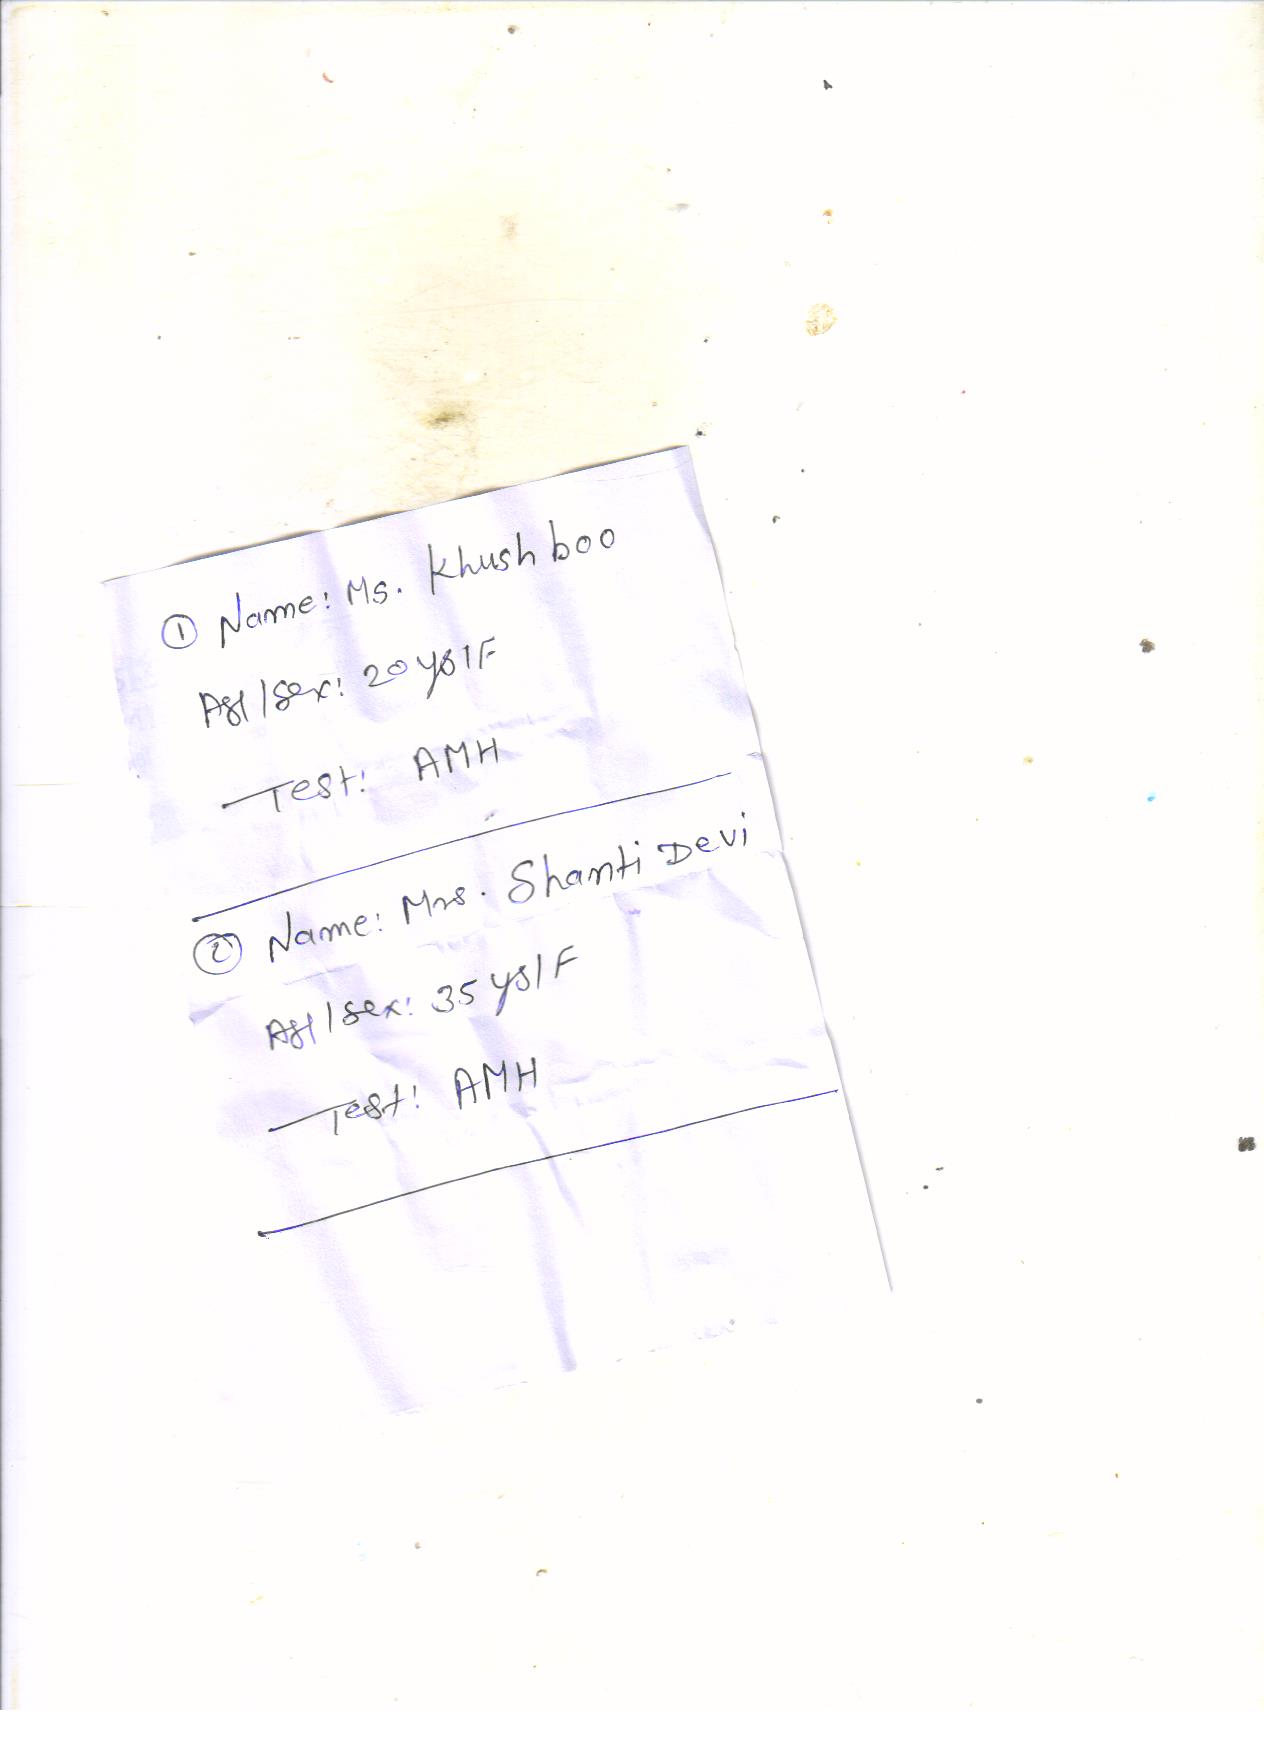 ① Name: Ms. Khushboo
Age/Sex: 20 ys/F
Test: AMH
② Name: Mrs. Shanti Devi
Age/Sex: 35 ys/F
Test: AMH